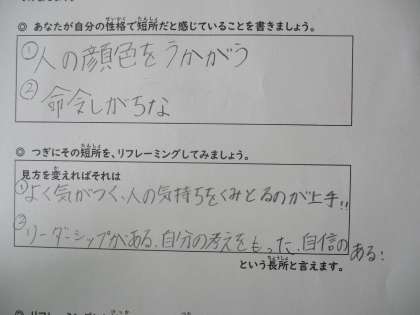 ◎ あなたが自分の性格で短所だと感じていることを書きましょう。
①人の顔色をうかがう
②命令しがちな
◎ つぎにその短所を、リフレーミングしてみましょう。
見方を変えればそれは
①よく気がつく、人の気持ちをくみとるのが上手!!
②リーダーシップがある、自分の考えをもった、自信のある!
という長所と言えます。